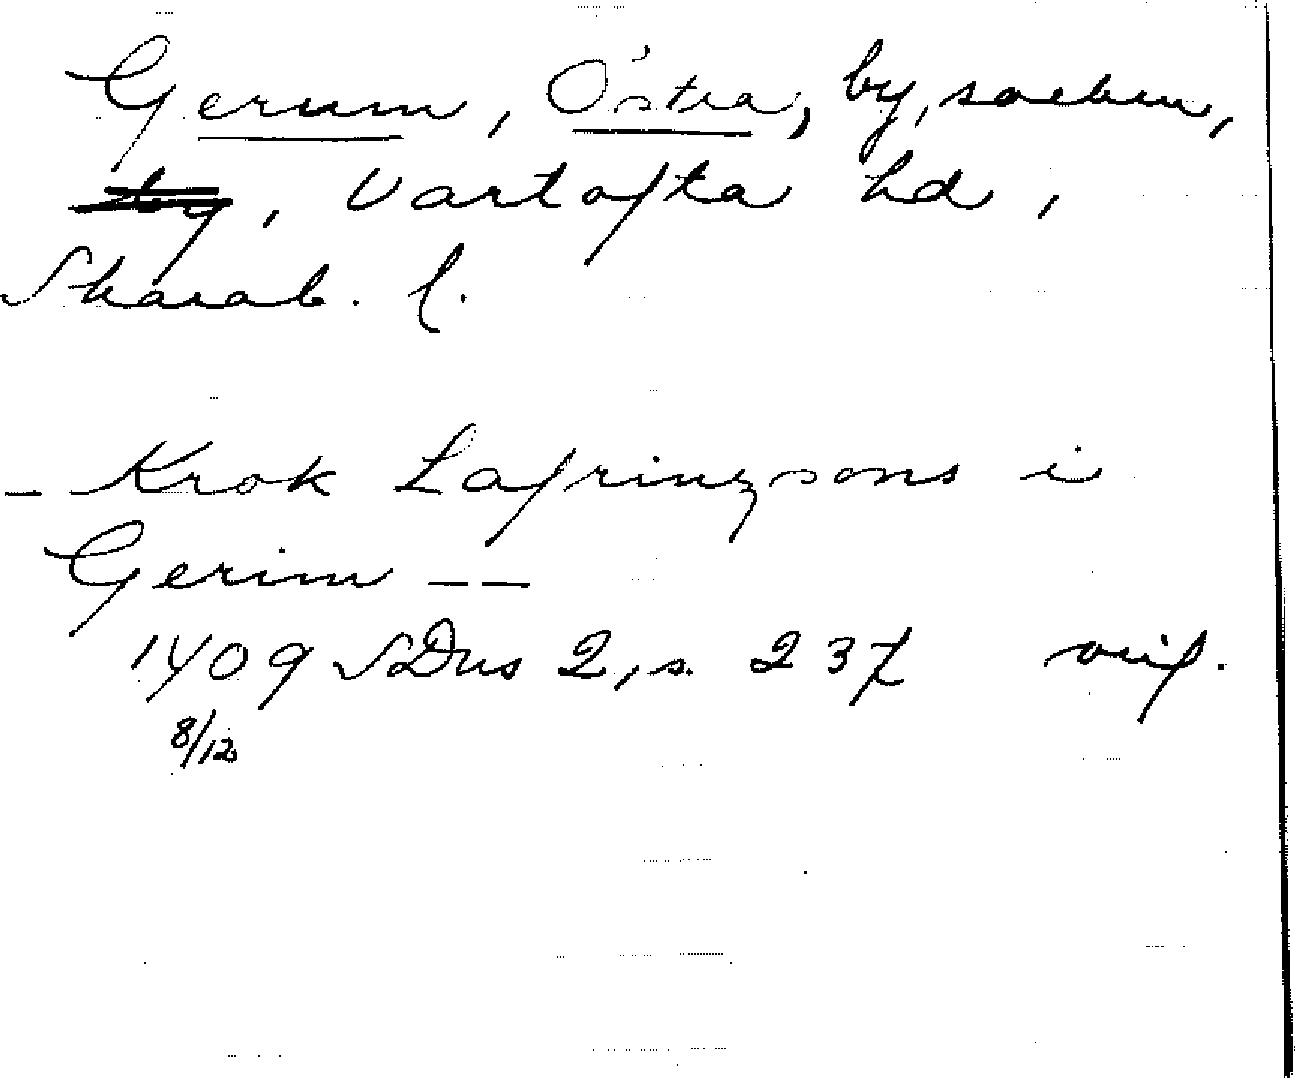 Gerum, Östra, by, socken,
by, Vartofta hd,
Skarab. l.
- Krok Lafringxsons i
Gerim --
1409 SDns 2, s. 237 orig.
8/12